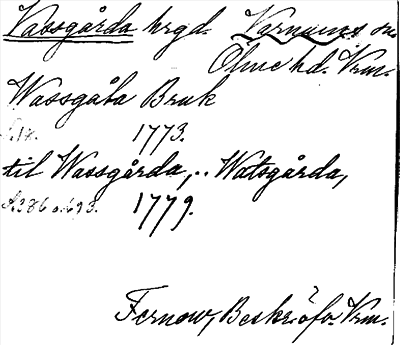 Vassgårda hrgd. Varnums sn.
Ölme hd. Vrm.
Wassgåla Bruk
s. 18. 1773.
til Wassgårda, .. Watsgårda,
s. 386 o. 693. 1779.
Fernow, Beskr. öfv. Vrm.